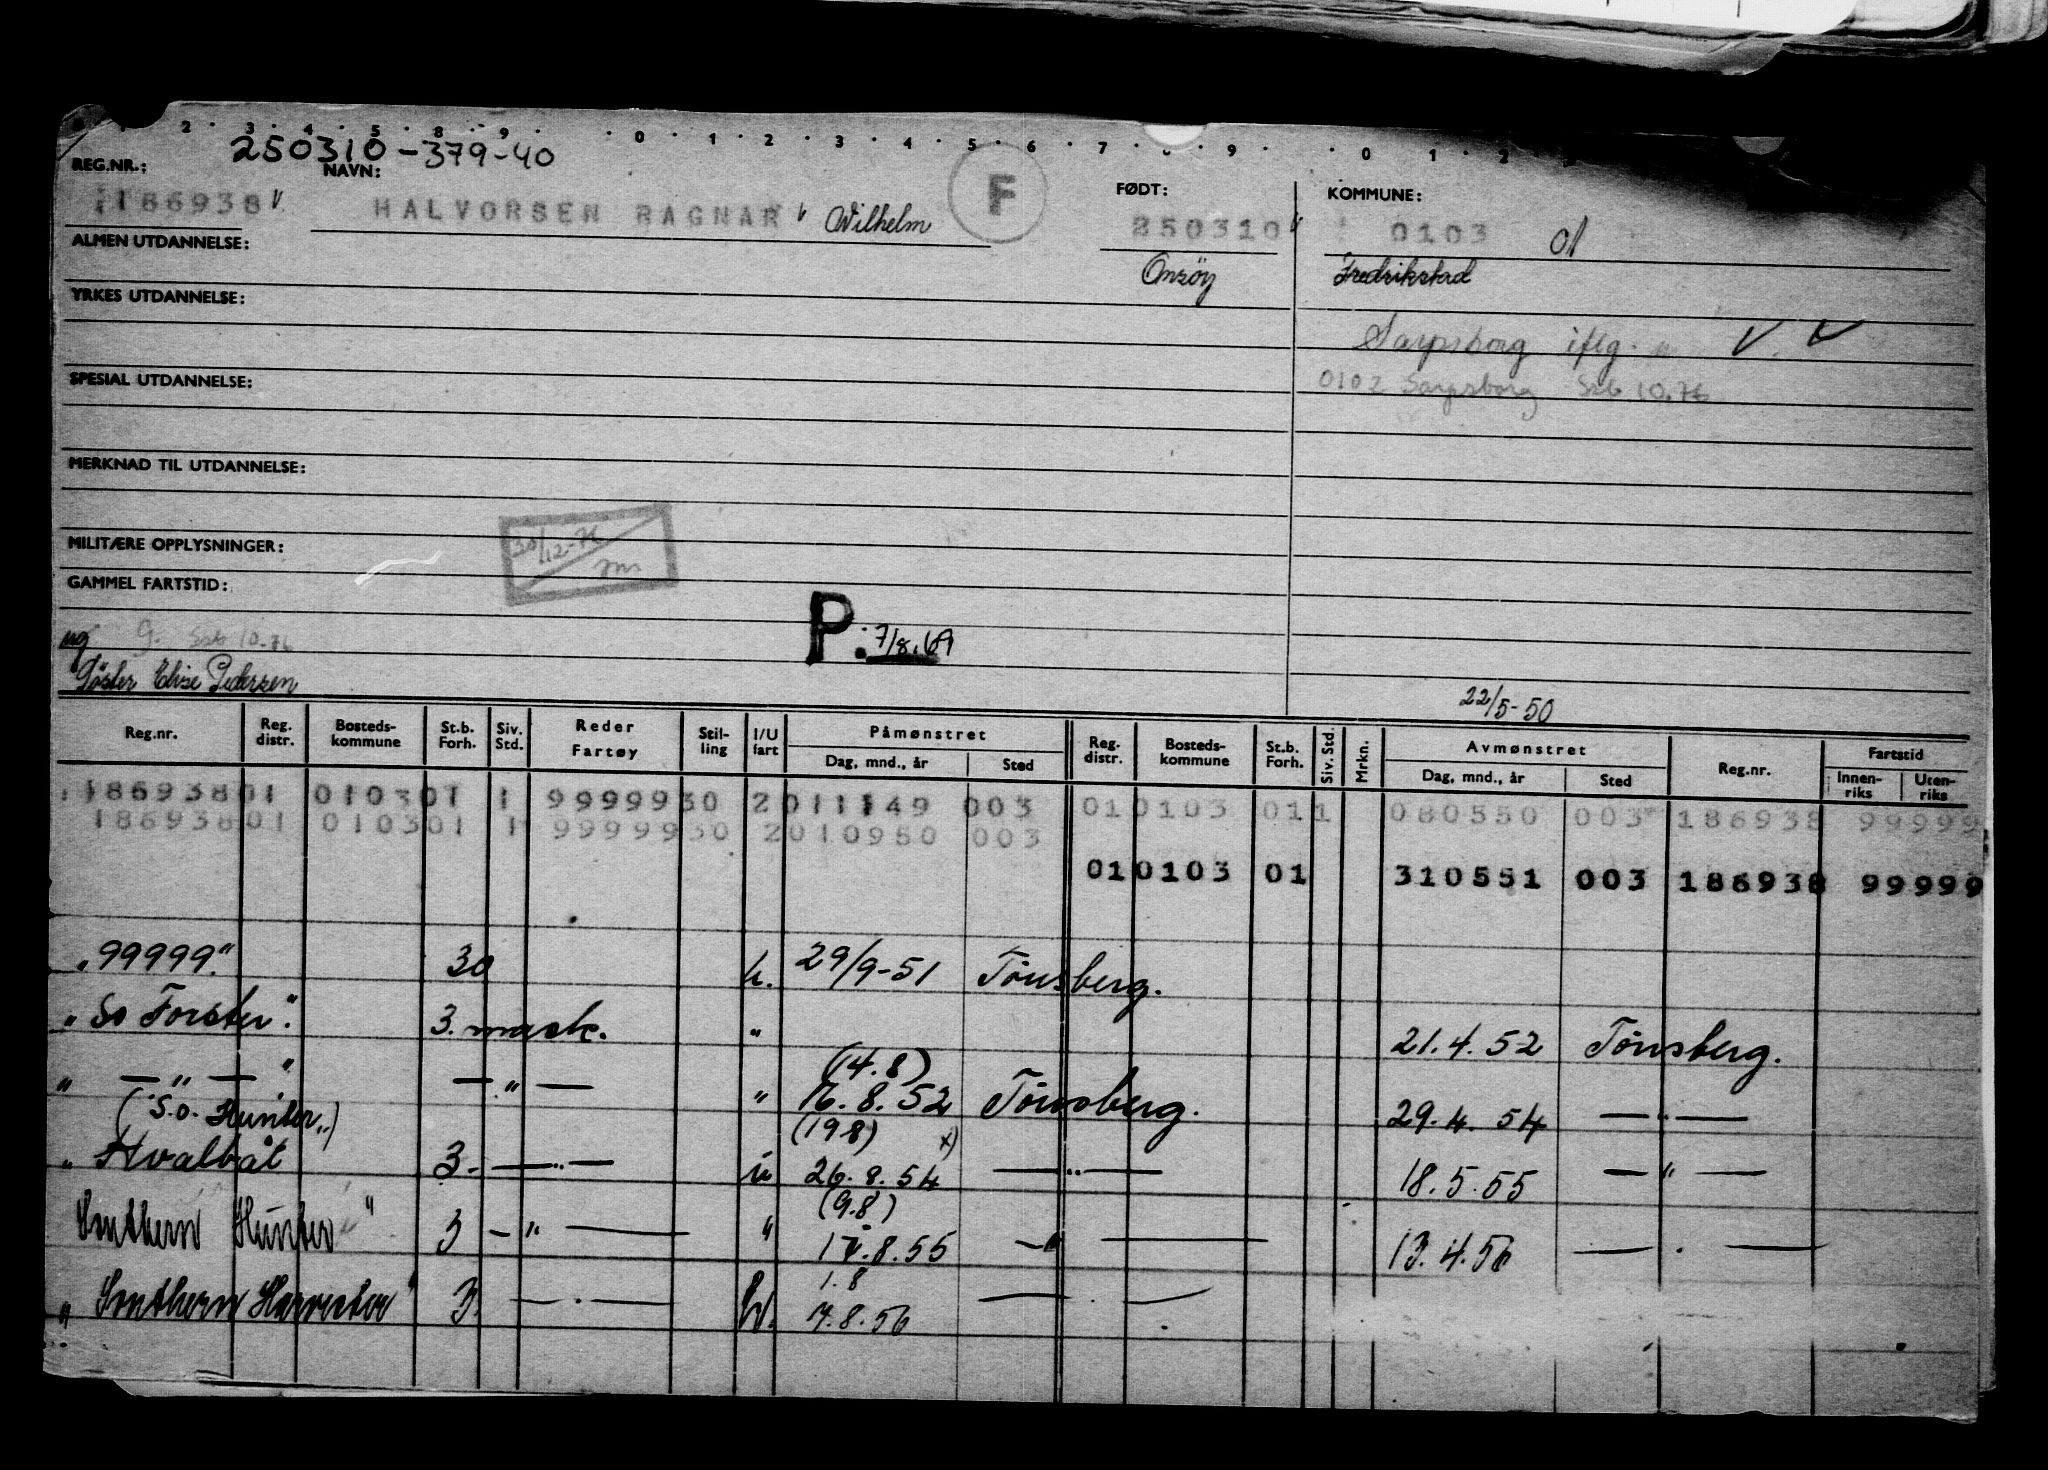 2 . 3 . 4 . 5 . 8 . 9 . . 0 . 1 . 2 . 3 . 4 . 5 . 6 . 7 . . 9 . . 0 . 1 . 2
250310-379-40
REG.NR.: NAVN: FØDT: KOMMUNE:
186938 v HALVORSEN RAGNAR v Wilhelm F 250310 v 0103 01
ALMEN UTDANNELSE: Onsøy Fredrikstad
YRKES UTDANNELSE:
Sarpsborg iflg.
SPESIAL UTDANNELSE: 0102 Sarpsborg Ssb 10.76
MERKNAD TIL UTDANNELSE:
MILITÆRE OPPLYSNINGER: 30/12-76
GAMMEL FARTSTID:
P. 7/8.69
ug G. Ssb 10.76
Søster Elise Pedersen
22/5-50
Reg.nr. Reg. distr. Bosteds-kommune St.b. Forh. Siv. Std. Reder Fartøy Stil-ling I/U fart Påmønstret Dag, mnd., år Sted Reg. distr. Bosteds-kommune St.b. Forh. Siv. Std. Mrkn. Avmønstret Dag, mnd., år Sted Reg.nr. Fartstid Innen-riks Uten-riks
18693801 010301 1 9999930 2 011149 003 01 0103 01 1 080550 003 186938 99999
18693801 010301 1 9999930 2 010950 003
01 0103 01 310551 003 186938 99999
"99999." 30 u. 29/9-51 Tønsberg.
"So Forster". 3. mask. " 21.4.52 Tønsberg.
(14.8)
" — " — " — " — " 16.8.52 Tønsberg. 29.4.54 — " —
("S.O. Hunter") (19.8) x)
" Hvalbåt 3. — " — u 26.8.54 — " — 18.5.55 — " —
(9.8)
Southern Hunter" 3 — " — " 17.8.55 — " — 13.4.56 — " —
1.8
"Southern Harvester" 3. — " — U. 7.8.56 — " —